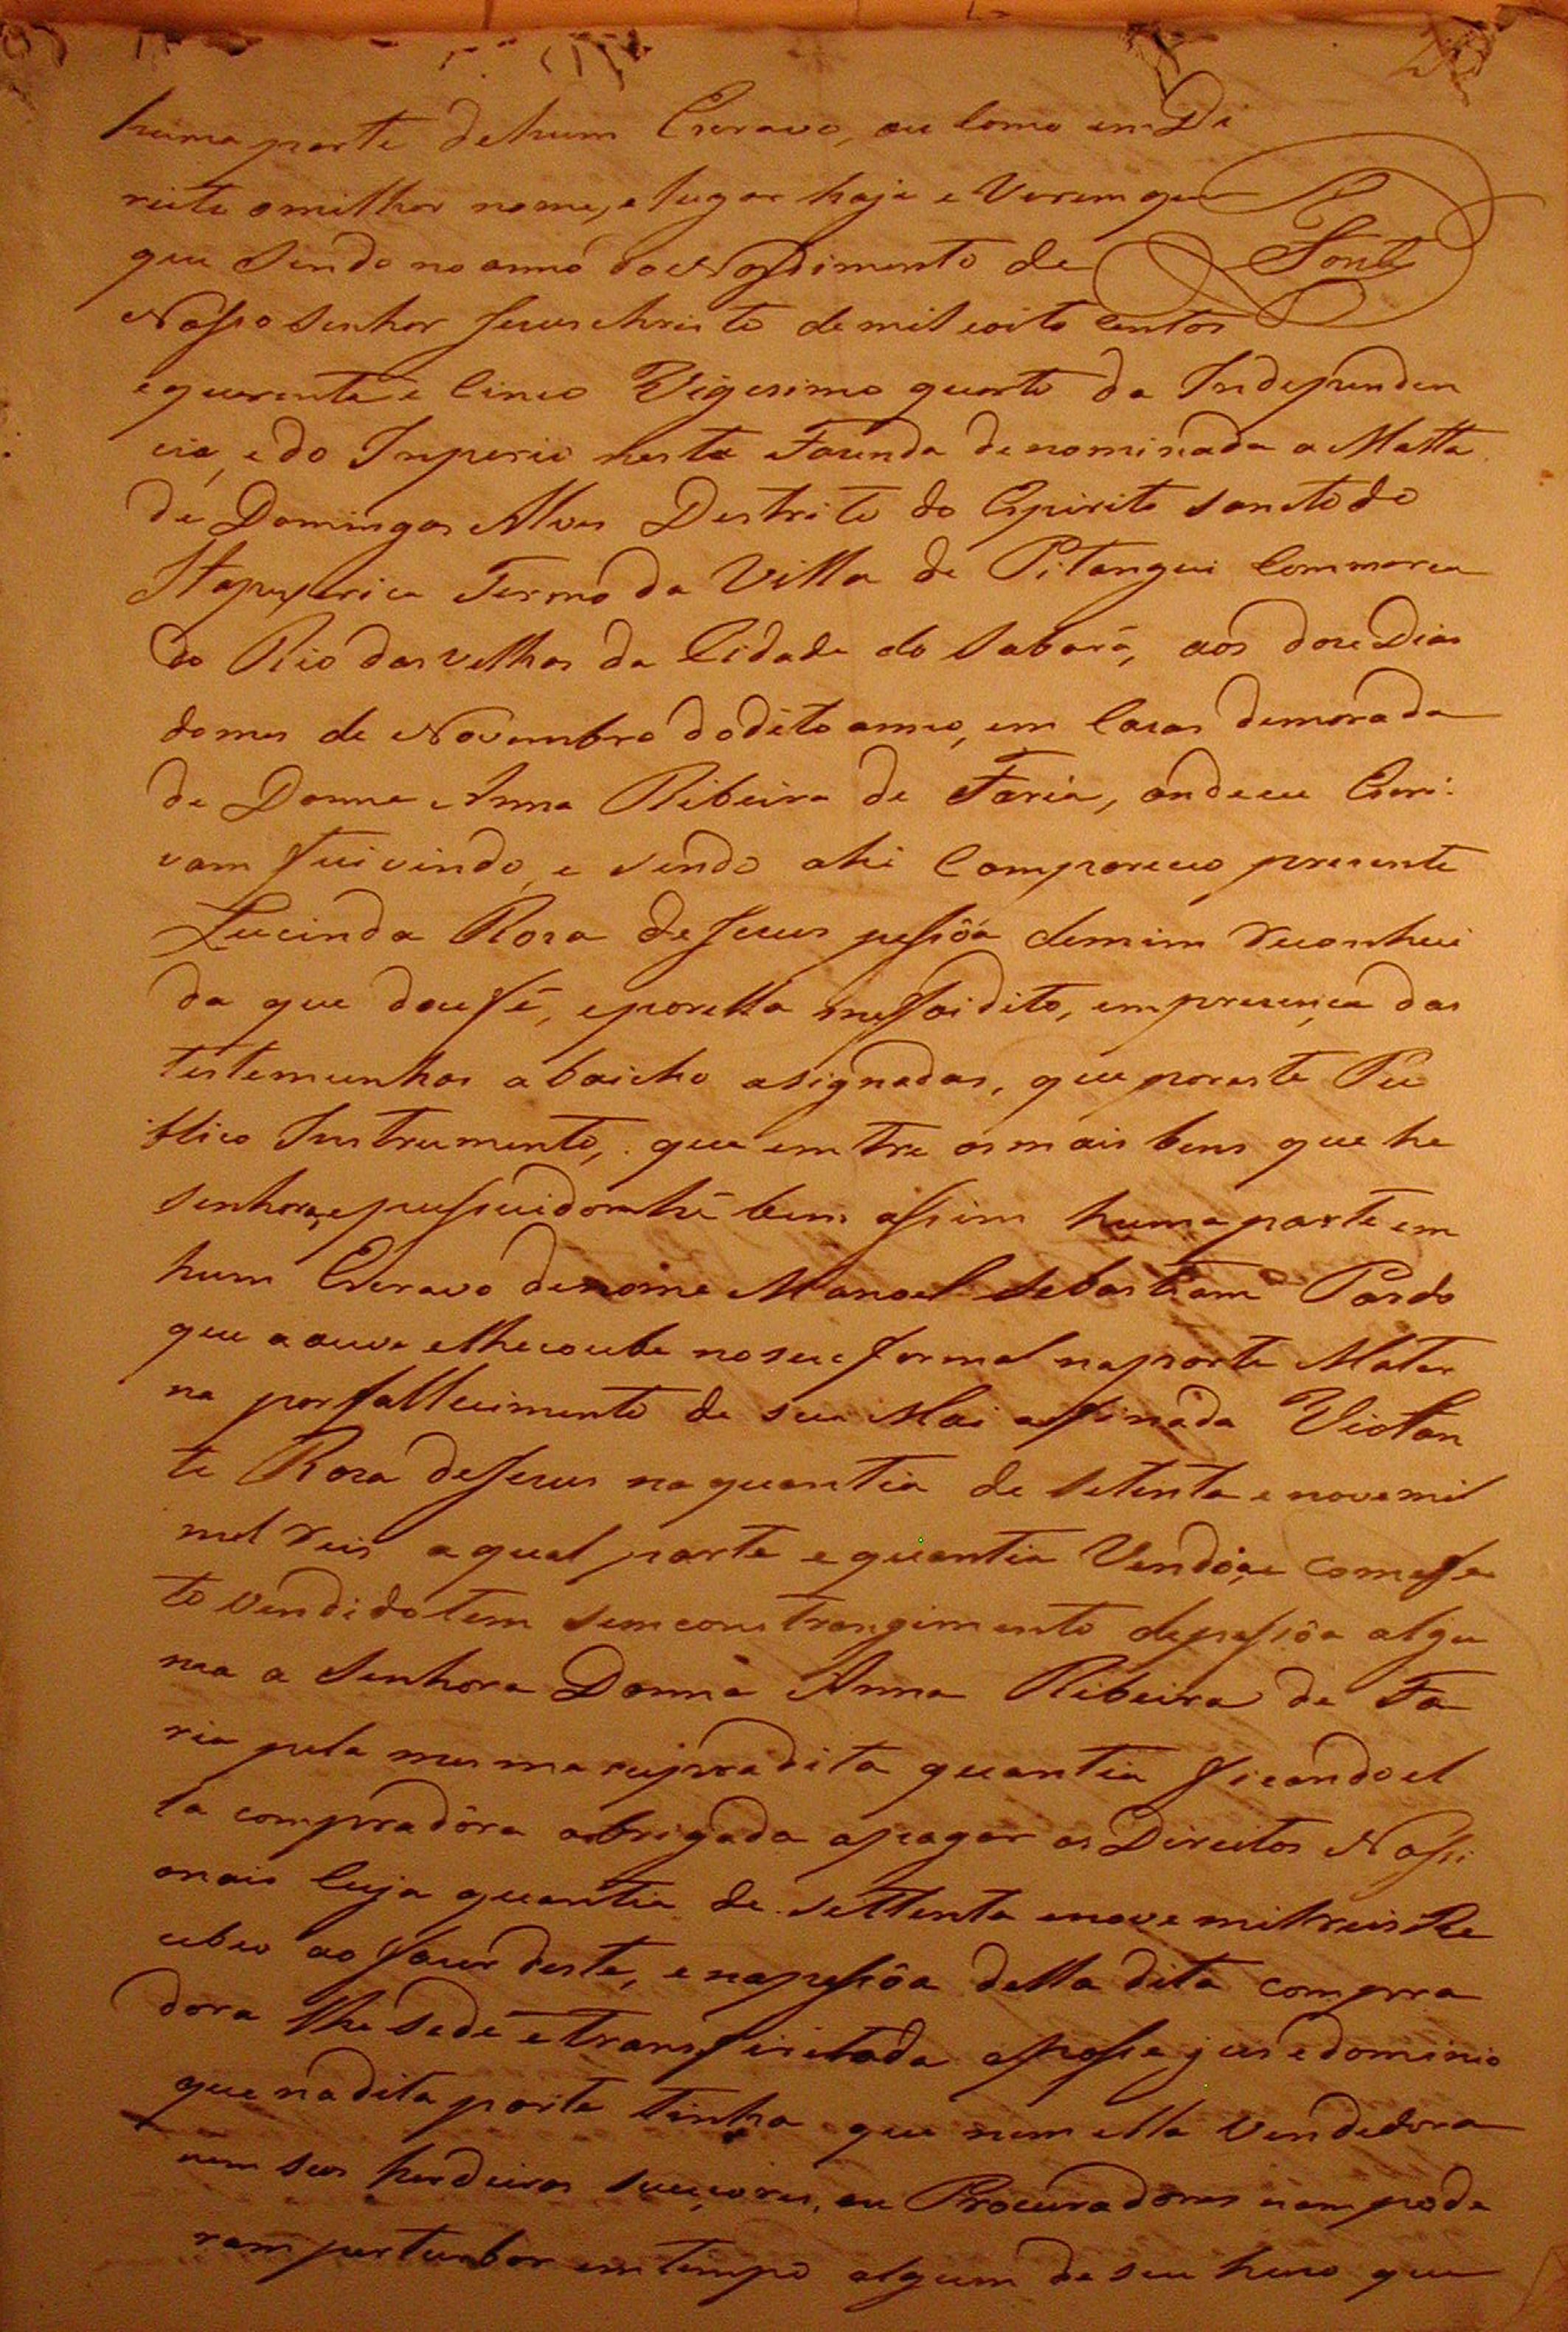 huma parte dehum Escravo, ou Como em Di
reito omilhor nome, e lugar haja e Verem que
que Sendo no anno do Nassimento de
Nosso Senhor Jesus christo de mil eoito Centos
equarenta e Cinco Vigesimo quarto da Independen
cia, e do Imperio nesta Fazenda denominada a Matta
de Domingos Alves Destrito do Espirito Sancto do
Itapeserica Termo da Villa de Pitangui Commarca
do Rio das velhas da Cidade do Sabará, aos doze Dias
do mes de Novembro doditto anno, em Cazas demorada
de Donna Anna Ribeira de Faria, onde eu Escri-
vam fui vindo, e sendo ahi Compareceo prezente
Lucinda Roza de Jesus pessôa demim reconheci
da que dou fé, eporella mefoi dito, em prezença das
testemunhas abaicho asignadas, que poreste Pu
blico Instrumento, que emtre os mais bens que he
Senhora, epussuidora hé bem assim huma parte em
hum Escravo de nome Manoel Sebastiam Pardo
que a ouve elhecoube no seu formal na parte Mater
na por fallecimento de sua Mai assinada Violan
te Roza de Jesus na quantia de Setenta e nove mil
mil reis a qual parte e quantia Vendia, e com efei
to vendido tem sem constrangimento depessôa algu
ma a Senhora Donna Anna Ribeira de Fa
ria pela mesma supradita quantia ficando el
la compradôra obrigada apagar os Direitos Nassi
onais Cuja quantia de Settenta enove mil reis Re
cebeo ao fazer deste, e napessôa della dita compra
dora lhe sede e transfiri toda aposse jus edominio
que na dita parte tinha que nem ella Vendedora
nem seus herdeiros sucçores, ou Procuradores nam pode
ram perturbar em tempo algum de seu huzo que
Font